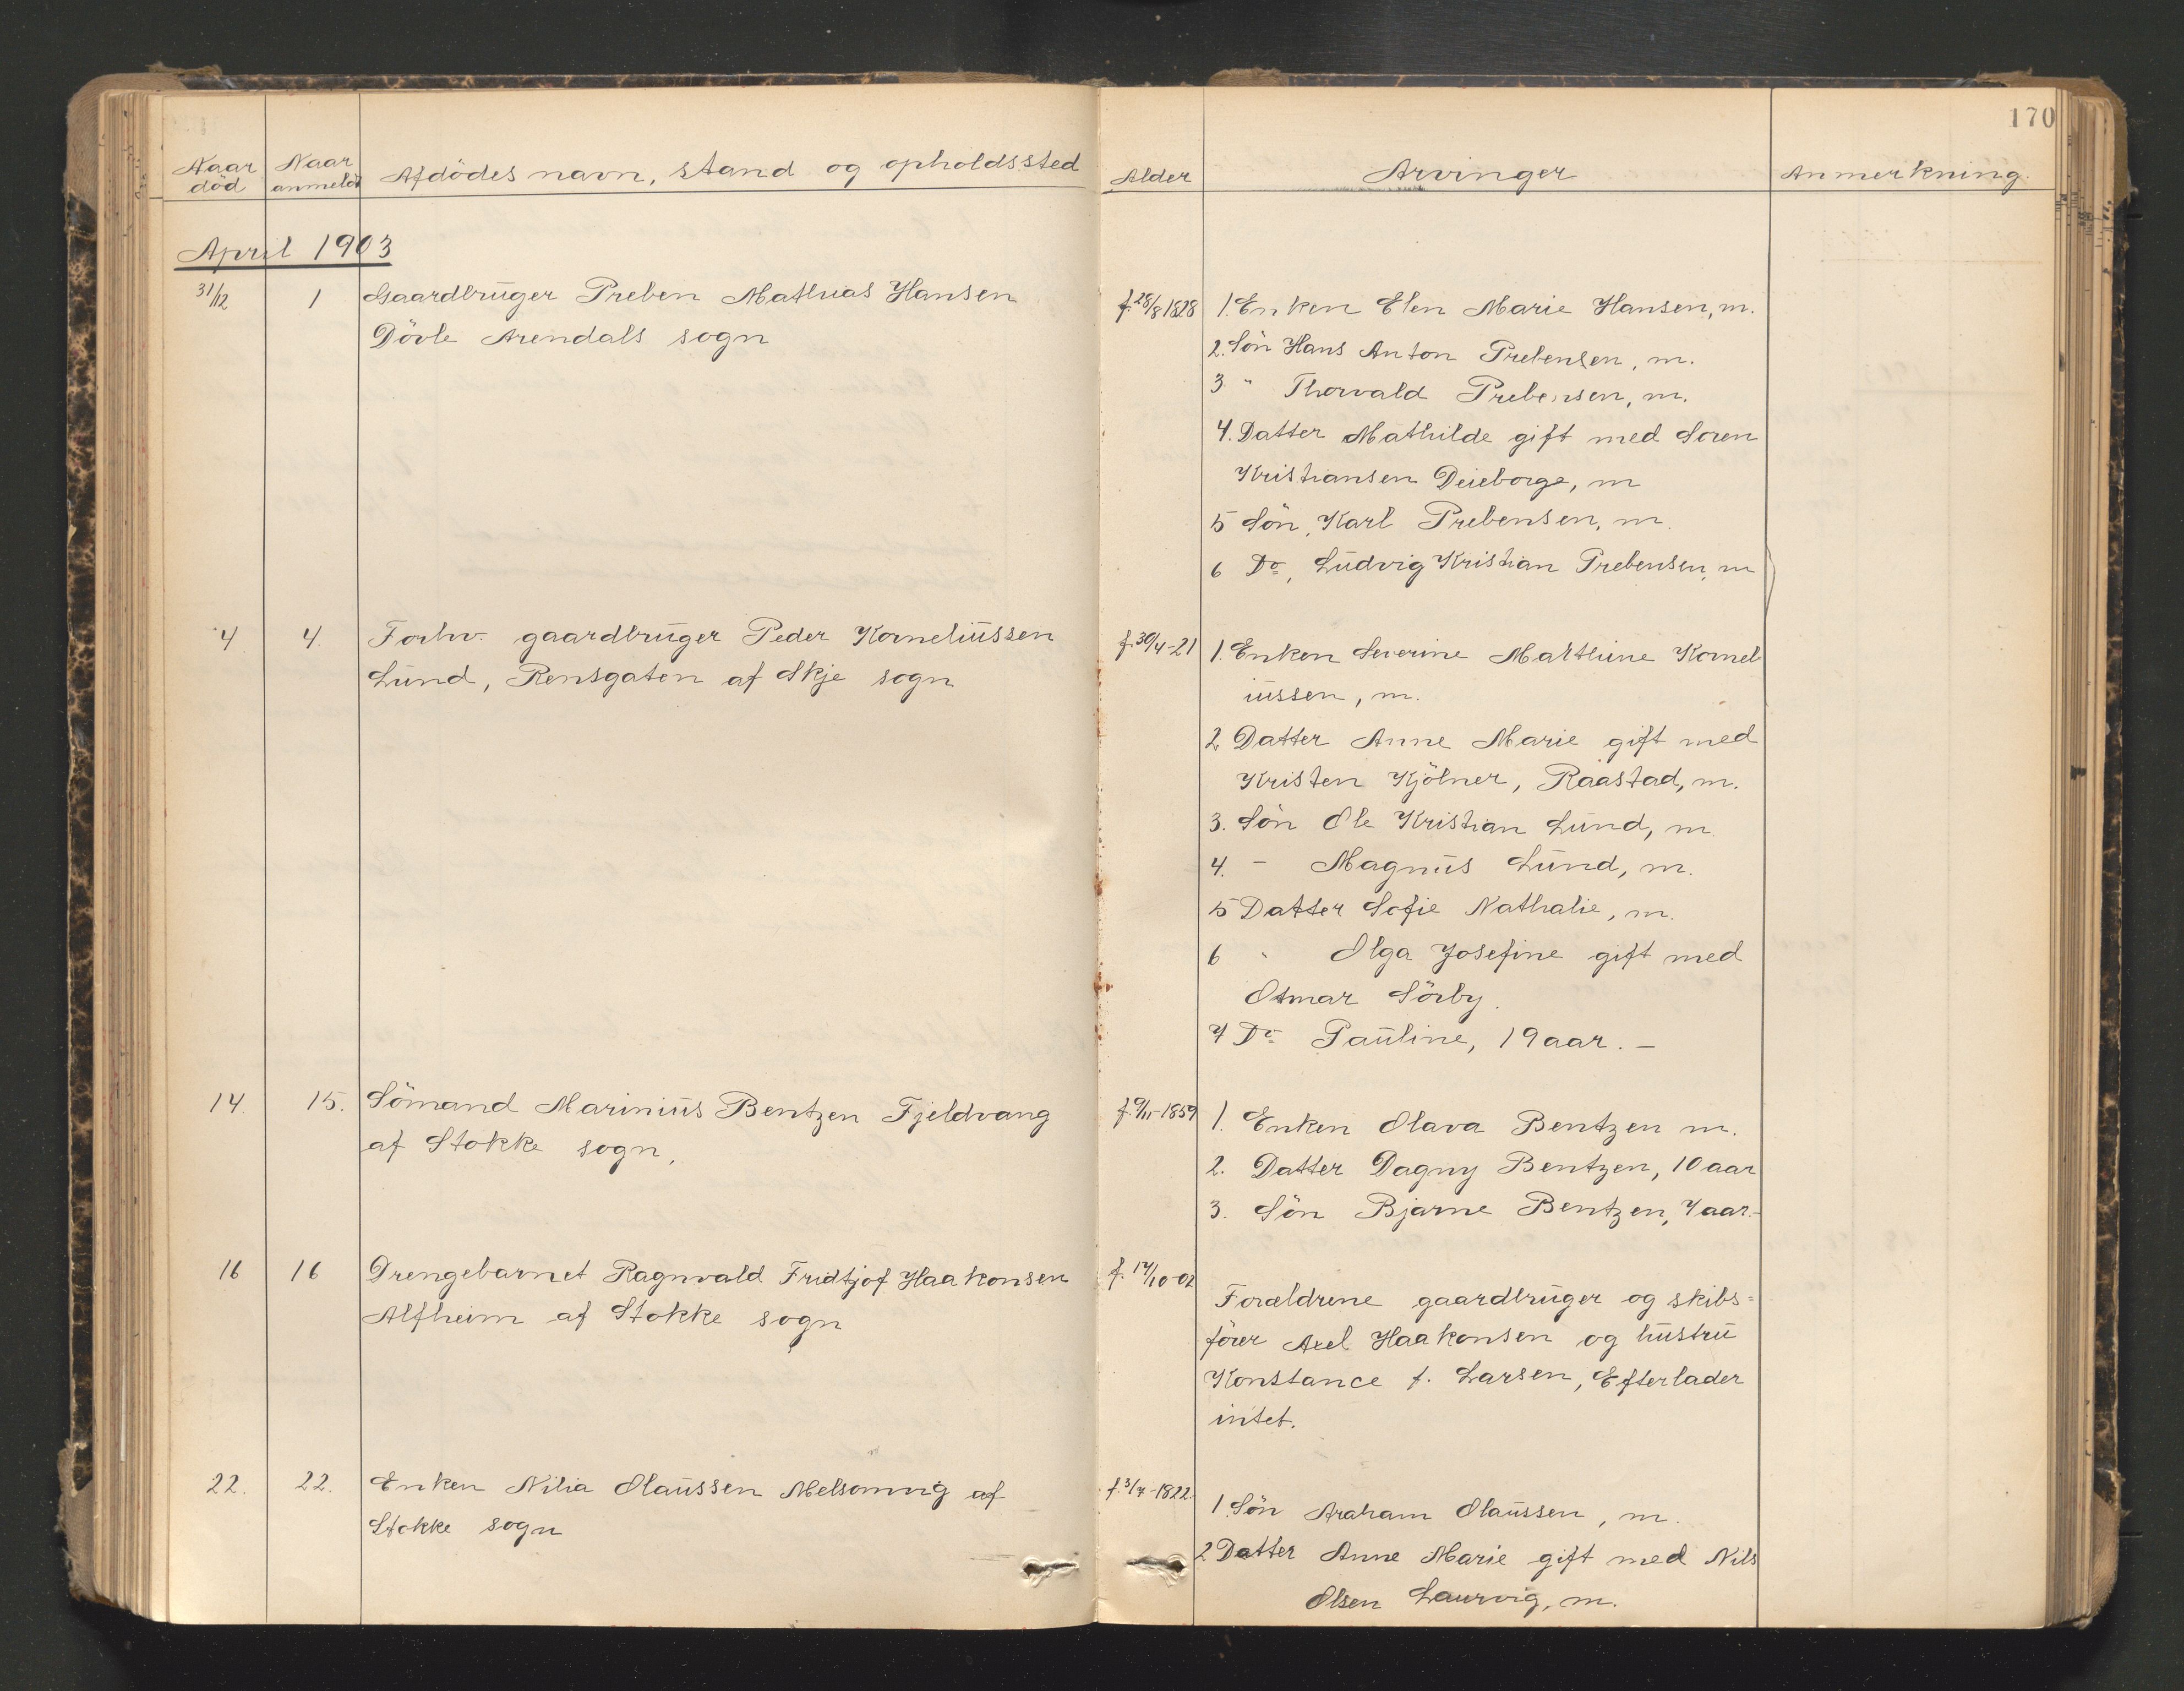 170
Naar død
Naar anmeldt
Afdödes navn, stand og opholdssted
Alder
Arvinger
Anmerkning.
April 1903
31/12
1
Gaardbruger Preben Mathias Hansen
Dövle Arendals sogn
f. 28/8 1828
1. Enken Elen Marie Hansen, m.
2. Sön Hans Anton Prebensen, m.
3 " Thorvald Prebensen, m.
4. Datter Mathilde gift med Sören
Kristiansen Deieborge, m
5 Sön, Karl Prebensen, m.
6 Do, Ludvig Kristian Prebensen, m
4
4.
Forhv. gaardbruger Peder Korneliussen
Lund, Rensgaten af Skje sogn
f. 30/4-21
1. Enken Severine Malthine Kornel
iussen, m.
2 Datter Anne Marie gift med
Kristen Kjölner, Raastad, m.
3. Sön Ole Kristian Lund, m.
4. - Magnus Lund, m.
5 Datter Sofie Nathalie, m.
6 " Olga Josefine gift med
Otmar Sörby.
7 Do Pauline, 19 aar. -
14.
15.
Sömand Marinius Bentzen Fjeldvang
af Stokke sogn,
f. 9/11-1859
1. Enken Olava Bentzen m.
2. Datter Dagny Bentzen, 10 aar
3. Sön Bjarne Bentzen, 7 aar.-
16
16
Drengebarnet Ragnvald Fridtjof Haakonsen
Alfheim af Stokke sogn
f. 14/10-02
Forældrene gaardbruger og skibs=
förer Axel Haakonsen og hustru
Konstance f. Larsen, Efterlader
intet.
22.
22.
Enken Nilia Olaussen Melsomvig af
Stokke sogn
f. 3/4-1822.
1. Sön Araham Olaussen, m.
2 Datter Anne Marie gift med Nils
Olsen Laurvig, m.